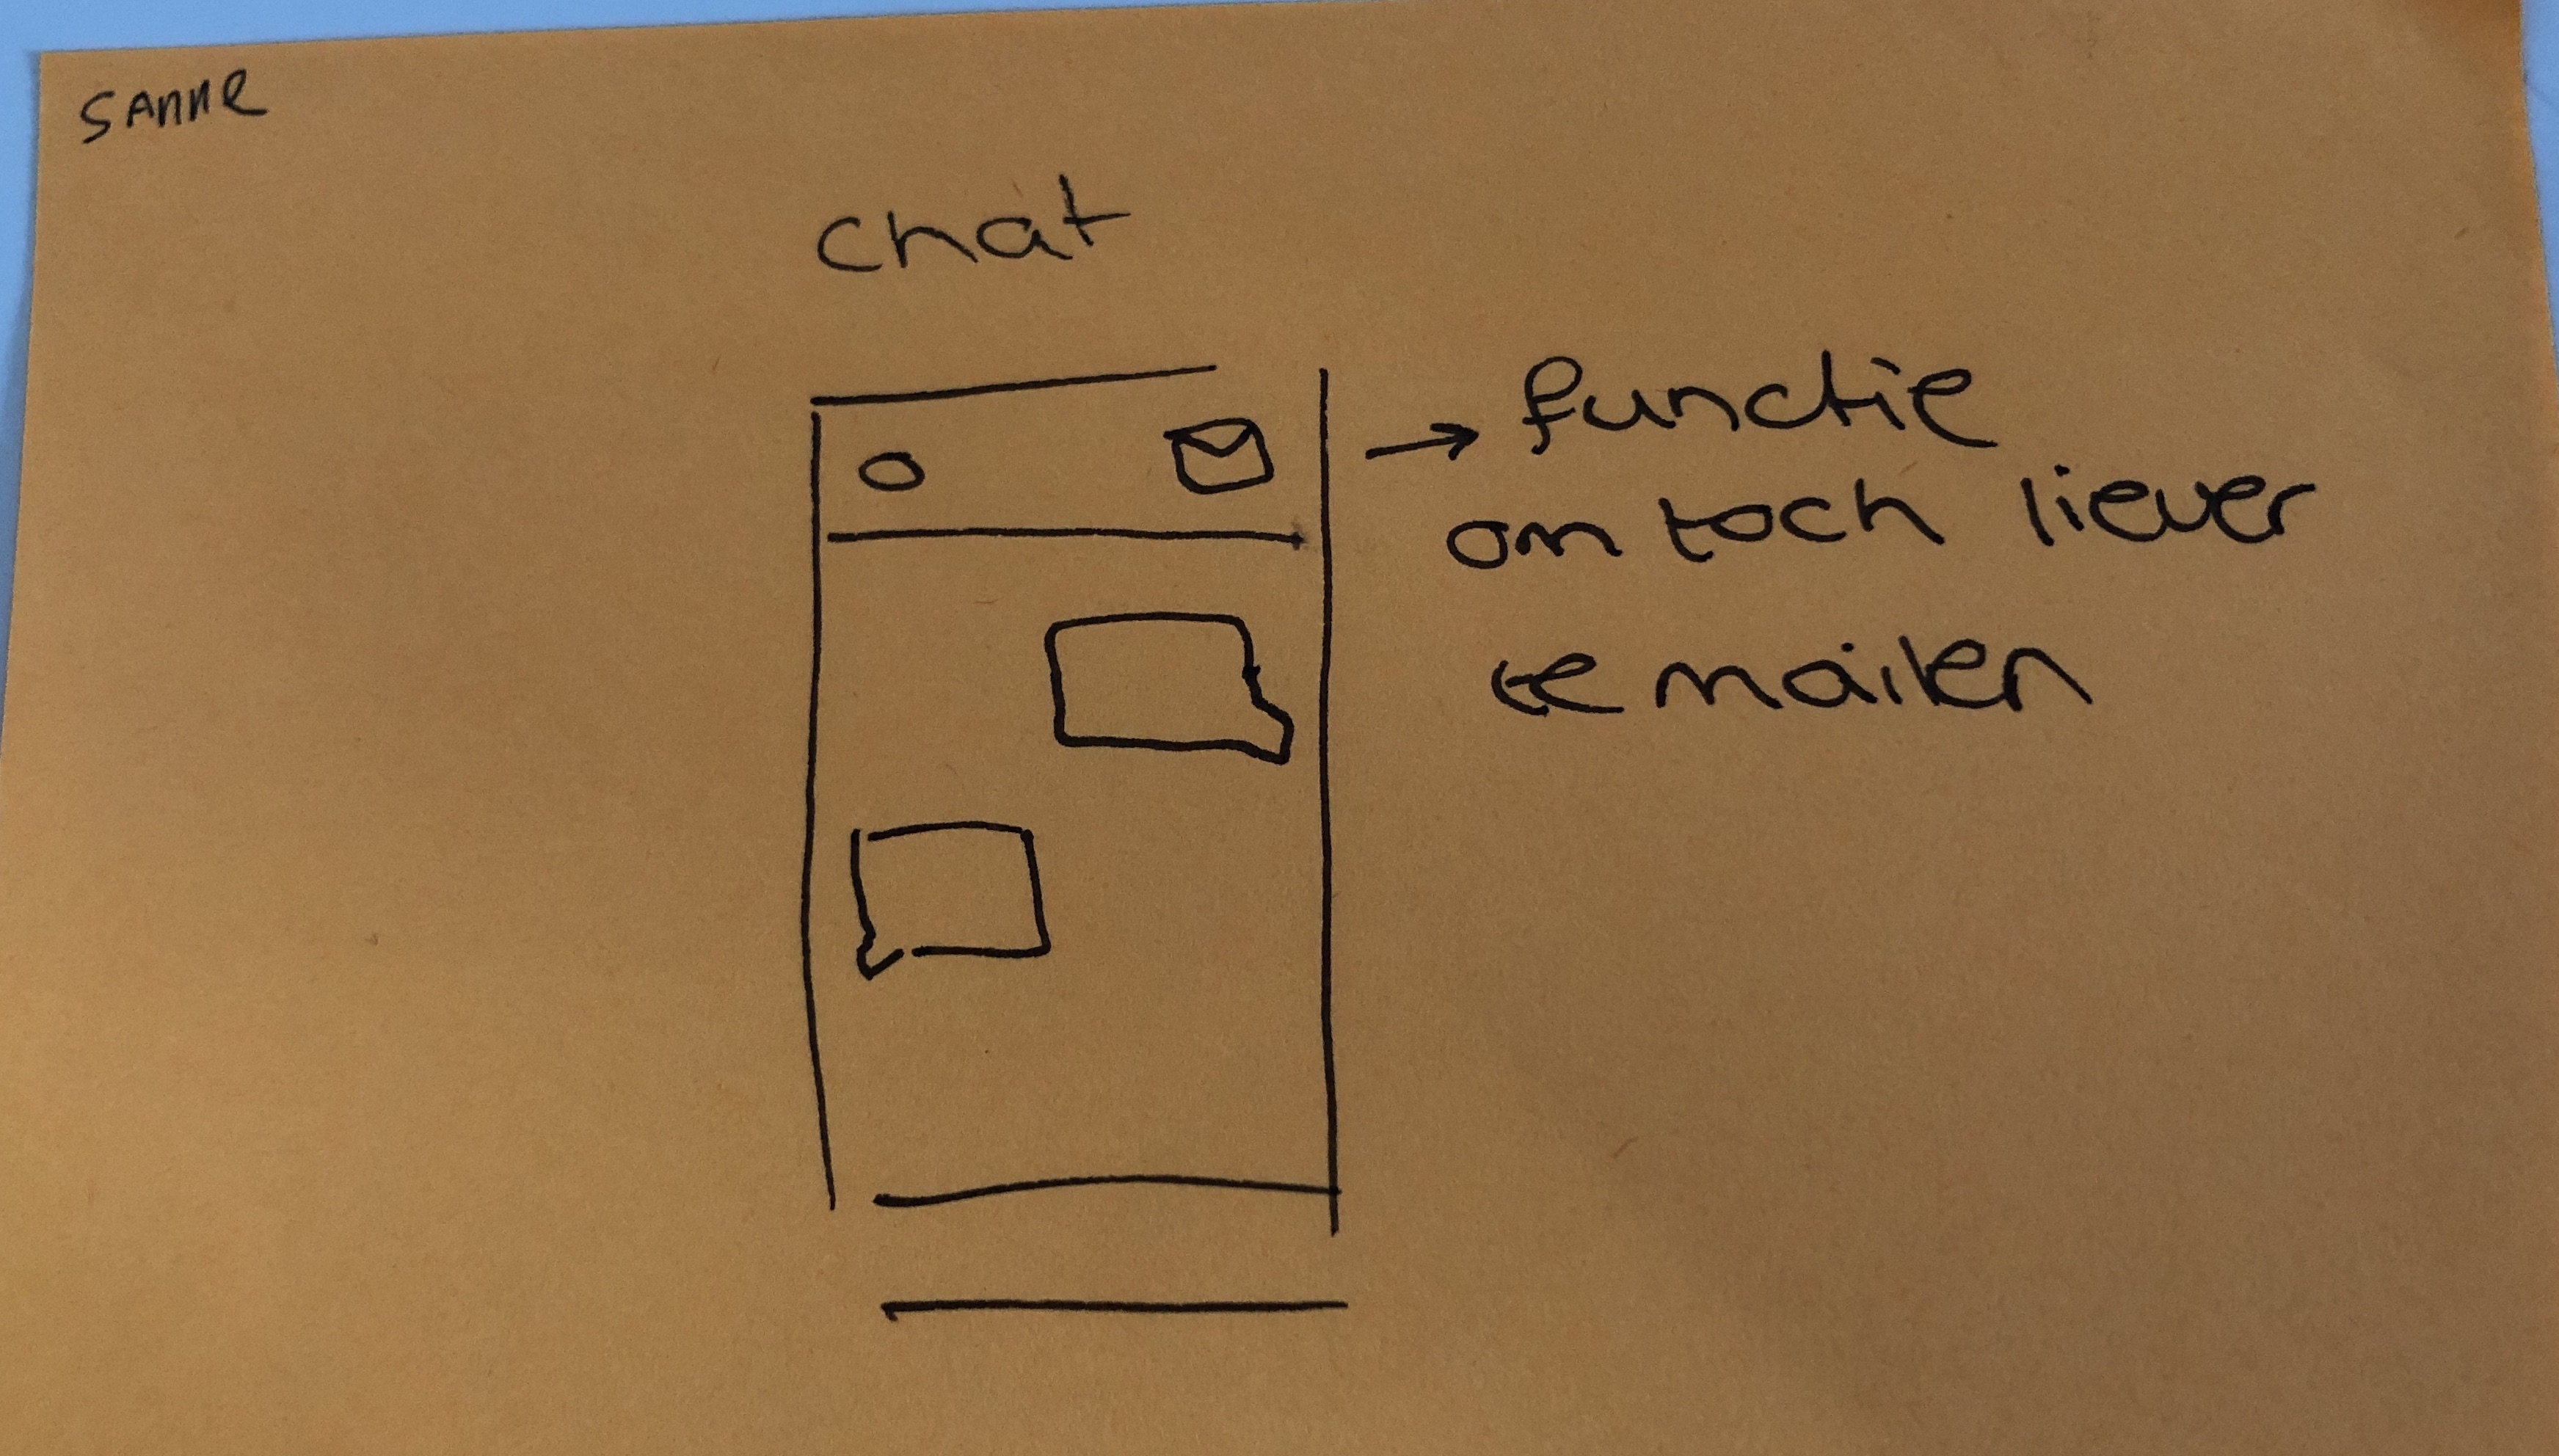 SANNE
chat
→ functie
om toch liever
te mailen